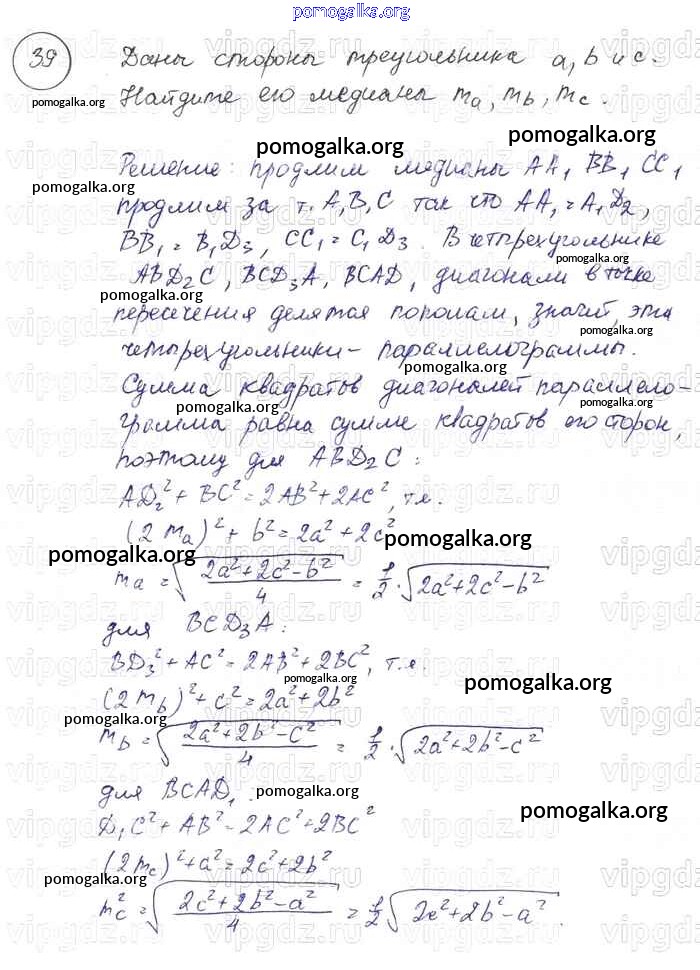 pomogalka.org
39 Даны стороны треугольника a, b и c.
Найдите его медианы mₐ, m_b, m_c.
pomogalka.org
pomogalka.org
Решение: продлим медианы AA₁ BB₁ CC₁
pomogalka.org
продлим за т. A, B, C так что AA₁=A₁D₂,
BB₁=B₁D₃, CC₁=C₁D₃. В четырехугольнике
pomogalka.org
ABD₂C, BCD₃A, BCAD, диагонали в точке
pomogalka.org
пересечения делятся пополам, значит, эти
pomogalka.org
четырехугольники - параллелограммы.
Сумма квадратов диагоналей параллело-
pomogalka.org pomogalka.org
грамма равна сумме квадратов его сторон,
поэтому для ABD₂C:
AD₂² + BC² = 2AB² + 2AC², т.к.
(2mₐ)² + b² = 2a² + 2c²
pomogalka.org pomogalka.org
mₐ = √((2a²+2c²-b²)/4) = 1/2·√(2a²+2c²-b²)
для BCD₃A:
BD₃² + AC² = 2AB² + 2BC², т.к.
pomogalka.org
(2m_b)² + c² = 2a² + 2b²
pomogalka.org
m_b = √((2a²+2b²-c²)/4) = 1/2·√(2a²+2b²-c²)
для BCAD₁
pomogalka.org
pomogalka.org
D₁C² + AB² = 2AC² + 2BC²
(2m_c)² + a² = 2c² + 2b²
pomogalka.org
m_c² = √((2c²+2b²-a²)/4) = 1/2√(2c²+2b²-a²).
pomogalka.org
pomogalka.org